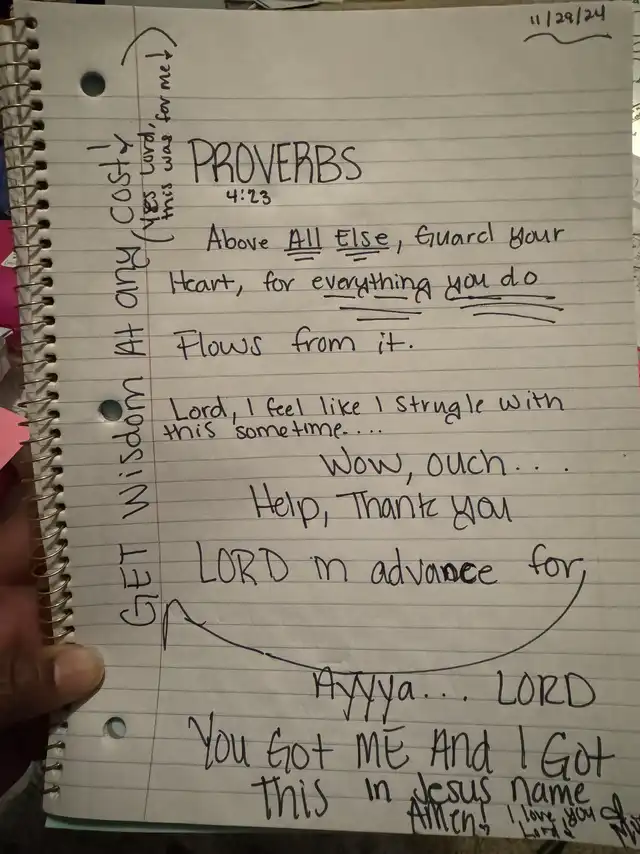 11/29/24
GET Wisdom At any cost!
(Yes Lord,
this was for me!)
PROVERBS
4:23
Above All Else, Guard your
Heart, for everything you do
Flows from it.
Lord, I feel like I strugle with
this sometime....
Wow, ouch...
Help, Thank you
LORD in advance for,
Ayyya... LORD
You Got ME And I Got
this in Jesus name
Amen! I love you
Lord